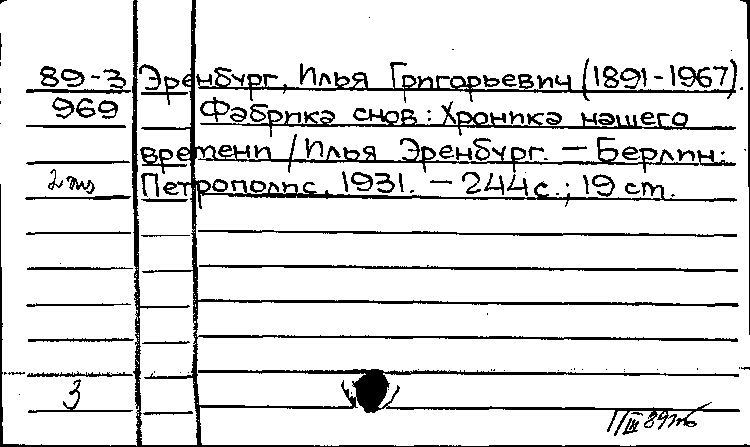 89-3 Эренбург, Илья Григорьевич (1891-1967).
969 Фабрика снов: Хроника нашего
времени / Илья Эренбург. — Берлин:
Петрополис, 1931. — 244 с.; 19 ст.
3